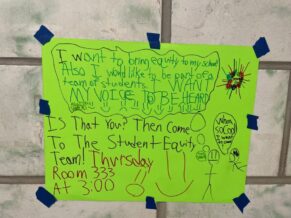 I want to bring equity to my school
Also I would like to be part of a
team of students. I WANT
MY VOICE TO BE HEARD
Is That You? Then Come
To The Student Equity
Team! Thursday
Room 333
At 3:00
Whoa
so cool
I want
to come